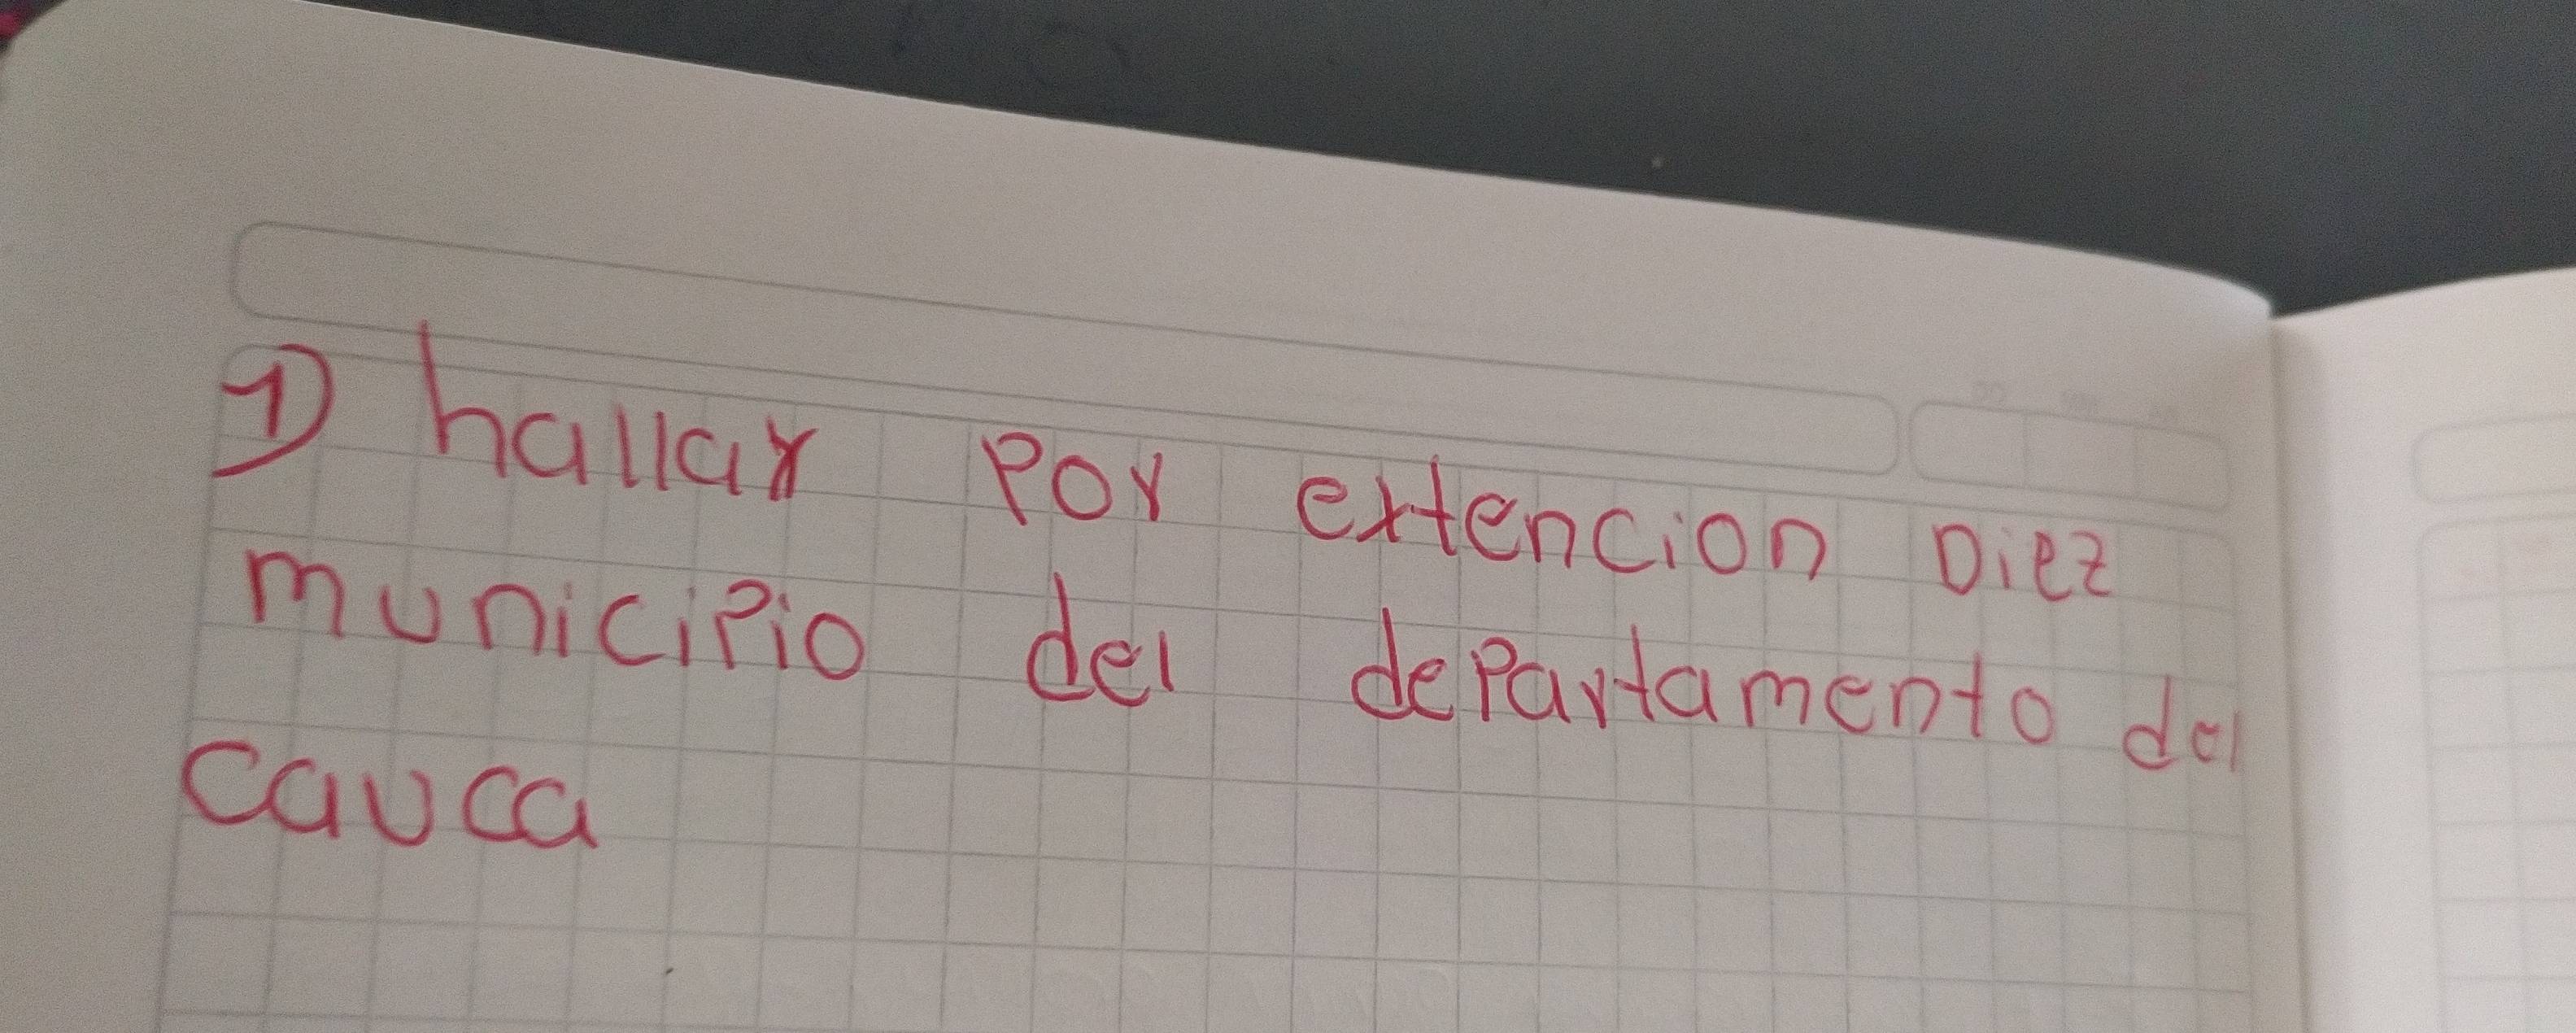 1) hallar por extencion Diez
municipio del departamento del
cauca